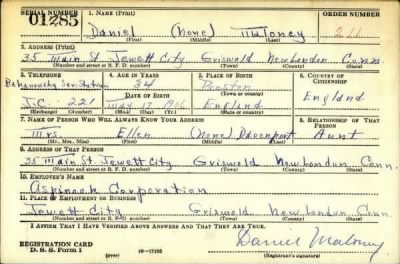 SERIAL NUMBER 1. NAME (Print) ORDER NUMBER
01285 Daniel (None) Maloney 211
(First) (Middle) (Last)
2. ADDRESS (Print)
35 Main St Jewett City Griswold New London Conn.
(Number and street or R. F. D. number) (Town) (County) (State)
3. TELEPHONE 4. AGE IN YEARS 5. PLACE OF BIRTH 6. COUNTRY OF CITIZENSHIP
34 Preston
DATE OF BIRTH (Town or county) England
J.C. 221 May 17 1906 England
(Exchange) (Number) (Mo.) (Day) (Yr.) (State or country)
7. NAME OF PERSON WHO WILL ALWAYS KNOW YOUR ADDRESS 8. RELATIONSHIP OF THAT PERSON
Mrs Ellen (None) Davenport Aunt
(Mr., Mrs., Miss) (First) (Middle) (Last)
9. ADDRESS OF THAT PERSON
35 Main St. Jewett City Griswold New London, Conn.
(Number and street or R. F. D. number) (Town) (County) (State)
10. EMPLOYER'S NAME
Aspinook Corporation
11. PLACE OF EMPLOYMENT OR BUSINESS
Jewett City Griswold New London Conn
(Number and street or R. F. D. number) (Town) (County) (State)
I AFFIRM THAT I HAVE VERIFIED ABOVE ANSWERS AND THAT THEY ARE TRUE.
Daniel Maloney
REGISTRATION CARD
D. S. S. Form 1 (over) 16-17105 (Registrant's signature)